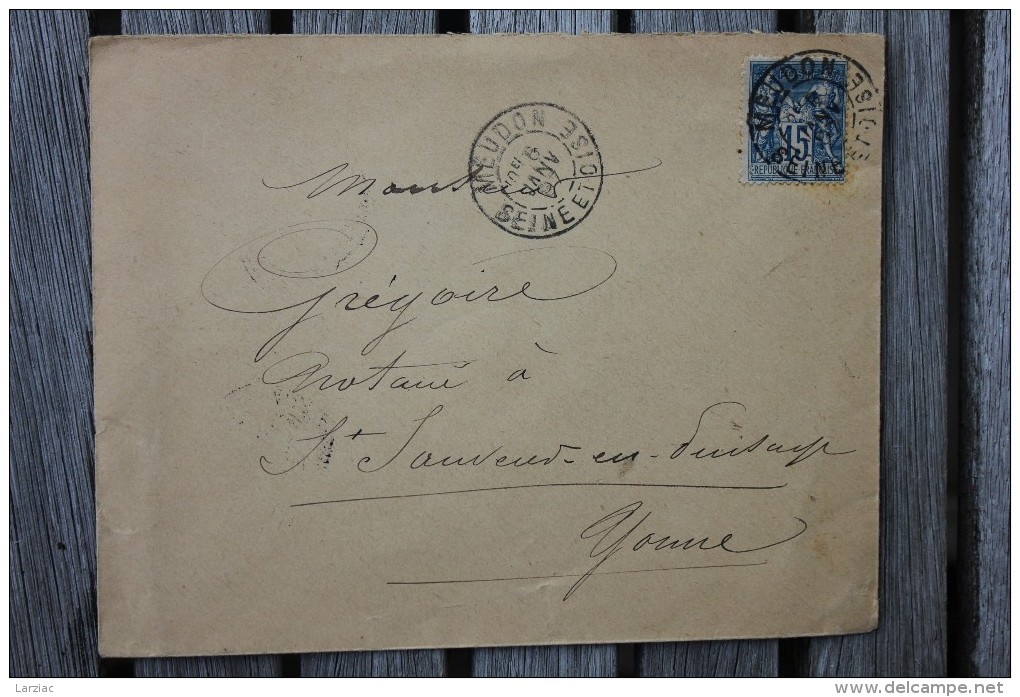 MEUDON
SEINE ET OISE
JANV
MEUDON
SEINE ET OISE
15
Monsieur
Grégoire
Notaire à
St Sauveur-en-Puisaye
Yonne
Larziac
delcampe.net